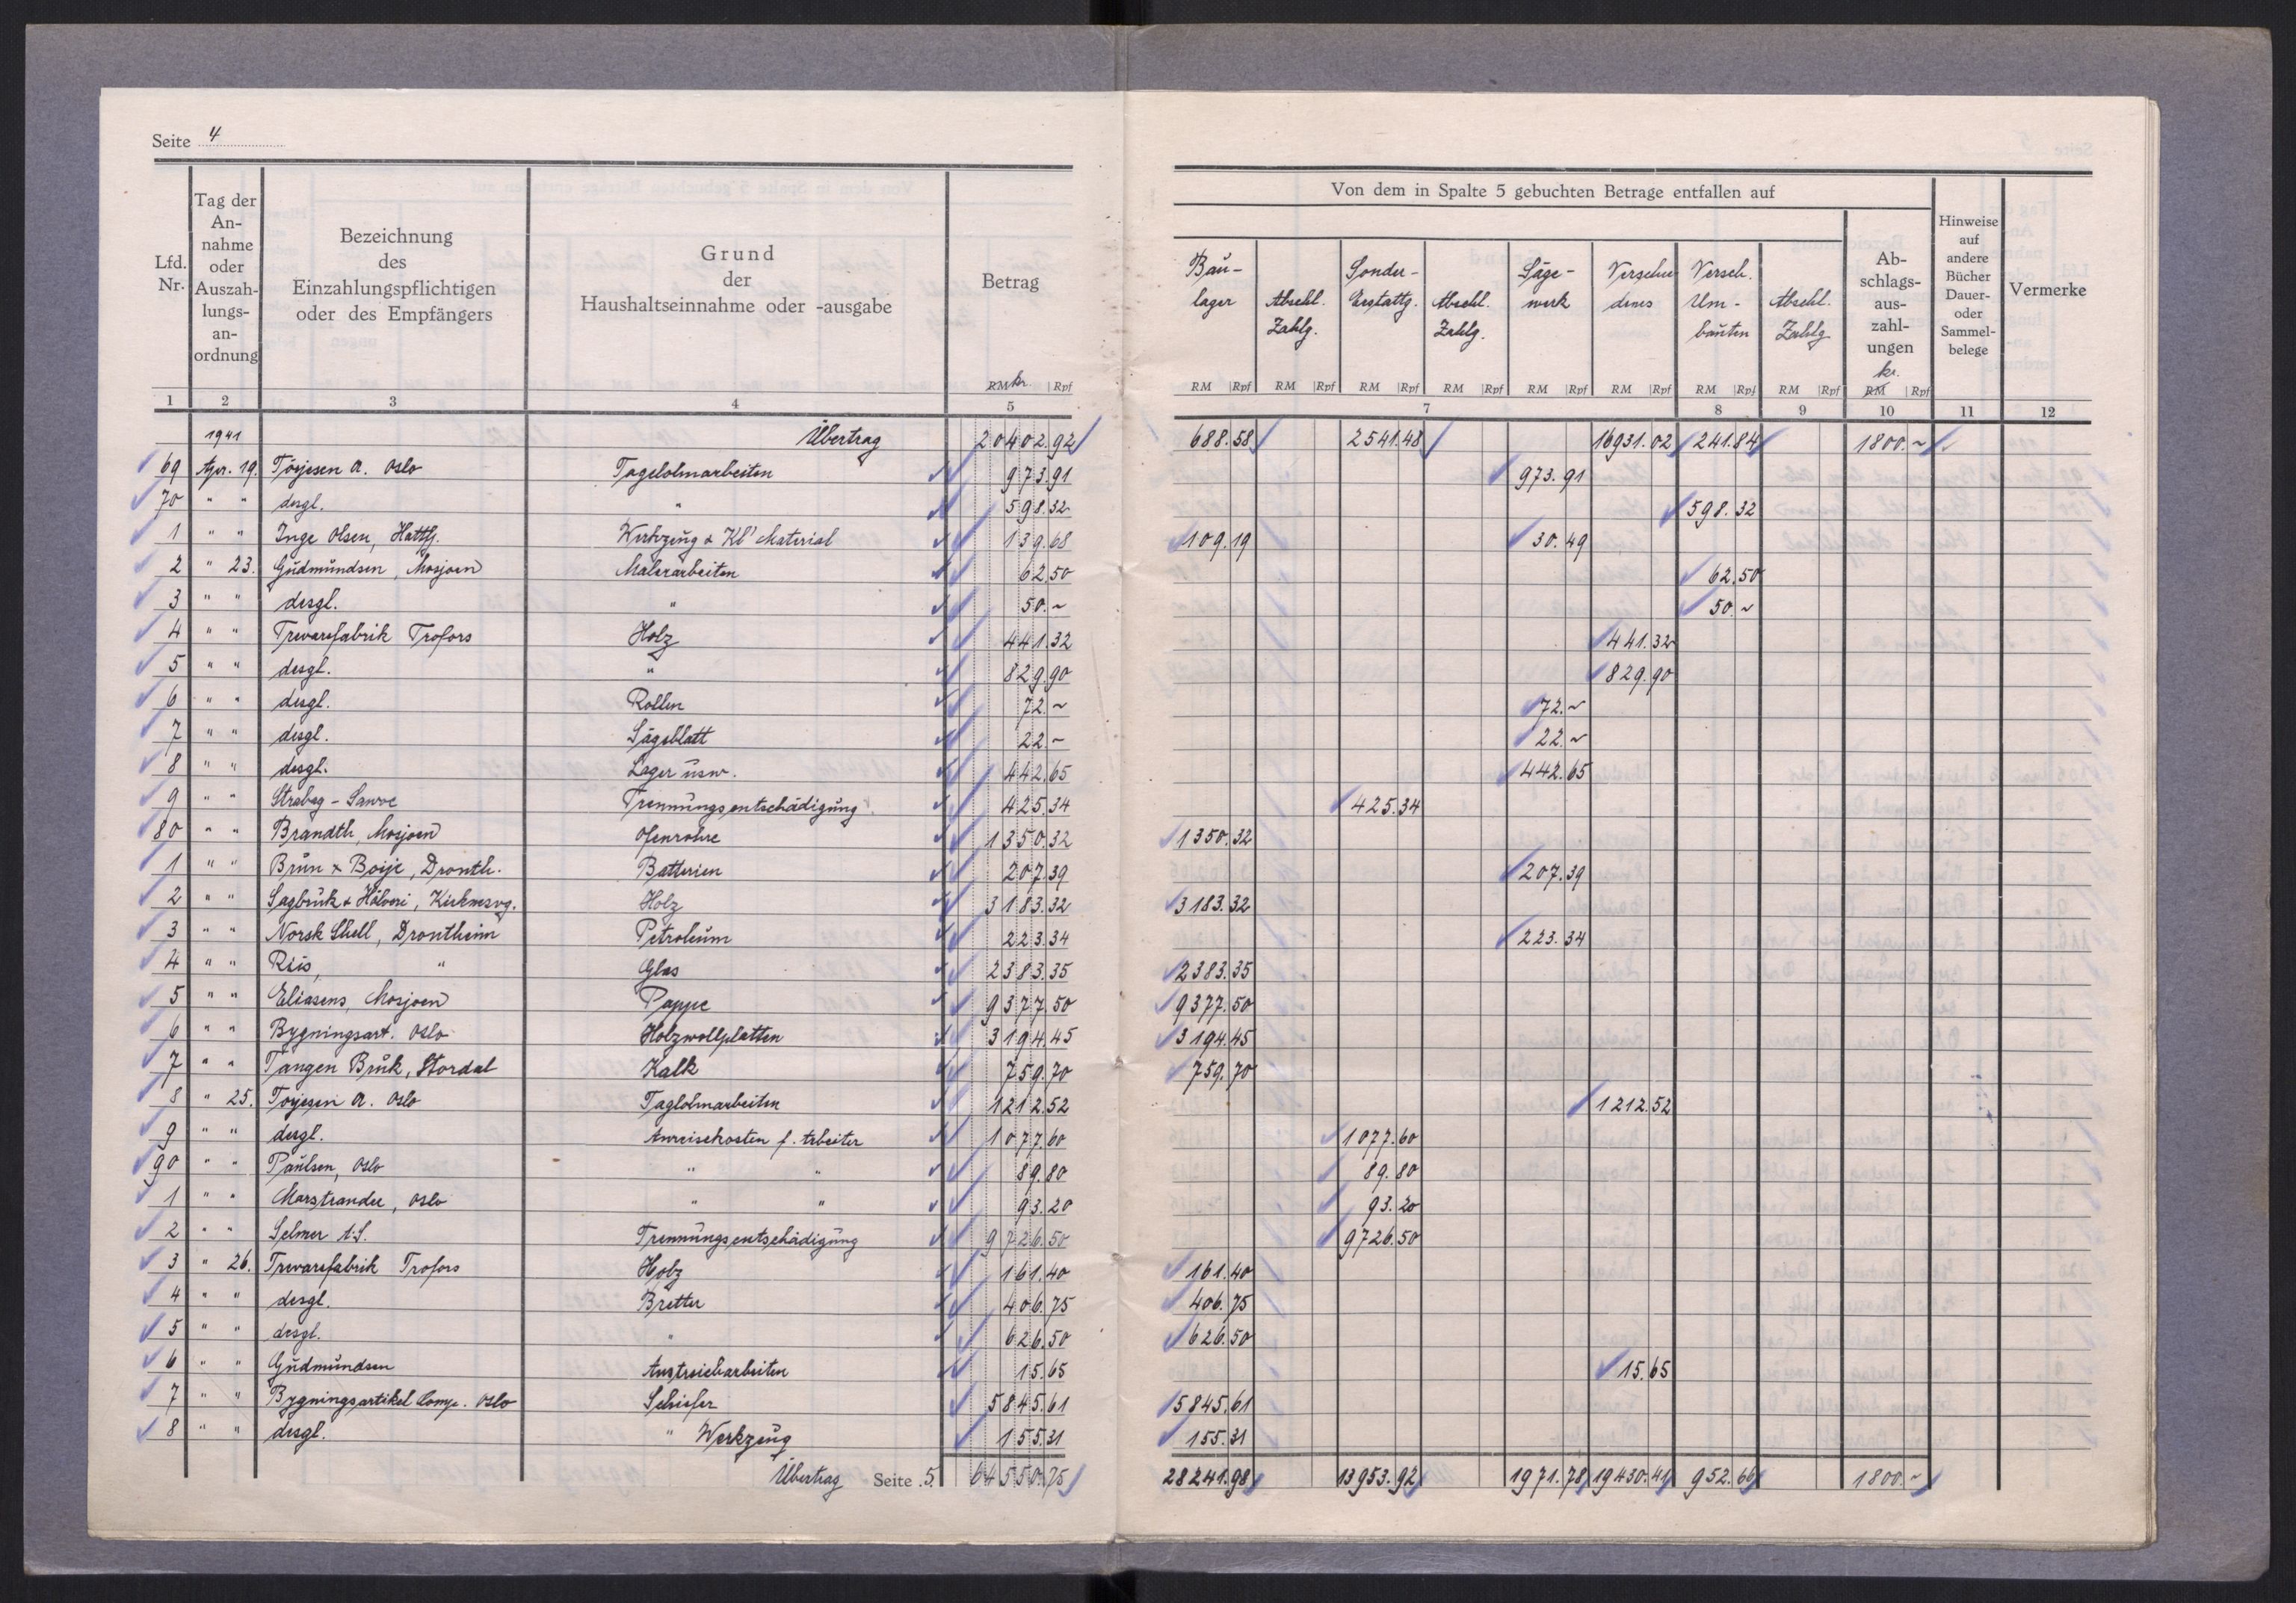 Seite 4
Lfd. Nr. | Tag der Annahme oder Auszahlungsanordnung | Bezeichnung des Einzahlungspflichtigen oder des Empfängers | Grund der Haushaltseinnahme oder -ausgabe | Betrag | Von dem in Spalte 5 gebuchten Betrage entfallen auf | Hinweise auf andere Bücher Dauer- oder Sammelbelege | Vermerke
Bau-lager | Abschl. Zahlg. | Sonder-Erstattg. | Abschl. Zahlg. | Sägewerk | Verschiedenes | Versch. Umbauten | Abschl. Zahlg. | Abschlagsauszahlungen
RM kr. Rpf | RM Rpf | RM Rpf | RM Rpf | RM Rpf | RM Rpf | RM Rpf | RM Rpf | RM Rpf | kr. RM Rpf
1 | 2 | 3 | 4 | 5 | 7 | 8 | 9 | 10 | 11 | 12
1941 Übertrag 20402.92 688.58 2541.48 16931.02 241.84 1800.~
69 Apr. 19. Törjesen A. Oslo Tagelohnarbeiten 973.91 973.91
70 " " desgl. " 598.32 598.32
1 " " Inge Olsen, Hattfj. Werkzeug & Kl' Material 139.68 109.19 30.49
2 " 23. Gudmundsen, Mosjoen Malerarbeiten 62.50 62.50
3 " " desgl. " 50.~ 50.~
4 " " Trevarefabrik Trofors Holz 441.32 441.32
5 " " desgl. " 829.90 829.90
6 " " desgl. Rollen 72.~ 72.~
7 " " desgl. Sägeblatt 22.~ 22.~
8 " " desgl. Lager usw. 442.65 442.65
9 " " Strabag - Sawoe Trennungsentschädigung 425.34 425.34
80 " " Brandth, Mosjoen Ofenrohre 1350.32 1350.32
1 " " Brun & Boije, Dronth. Batterien 207.39 207.39
2 " " Sagbruk & Hölveri, Kirknesvg. Holz 3183.32 3183.32
3 " " Norsk Shell, Drontheim Petroleum 223.34 223.34
4 " " Reis, " Glas 2383.35 2383.35
5 " " Eliasens, Mosjoen Pappe 9377.50 9377.50
6 " " Bygningsart. Oslo Holzwollplatten 3194.45 3194.45
7 " " Tangen Bruk, Stordal Kalk 759.70 759.70
8 " 25. Törjesen A. Oslo Taglohnarbeiten 1212.52 1212.52
9 " " desgl. Anreisekosten f. Arbeiter 1077.60 1077.60
90 " " Paulsen, Oslo " " 89.80 89.80
1 " " Marstrander, Oslo " " 93.20 93.20
2 " " Selmer A.S. Trennungsentschädigung 9726.50 9726.50
3 " 26. Trevarefabrik Trofors Holz 161.40 161.40
4 " " desgl. Bretter 406.75 406.75
5 " " desgl. " 626.50 626.50
6 " " Gudmundsen Anstreicharbeiten 15.65 15.65
7 " " Bygningsartikel Comp. Oslo Schiefer 5845.61 5845.61
8 " " desgl. " Werkzeug 155.31 155.31
Übertrag Seite 5. 64550.75 28241.98 13953.92 1971.78 19430.41 952.66 1800.~